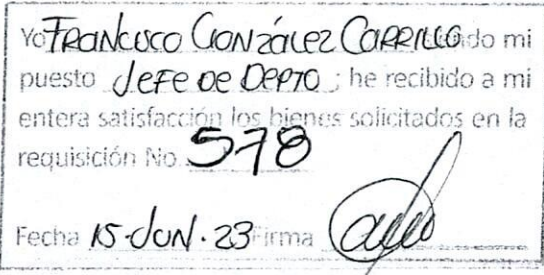 Yo Francisco González Carrillo siendo mi
puesto Jefe de Depto ; he recibido a mi
entera satisfacción los bienes solicitados en la
requisición No. 578
Fecha 15-Jun.23 Firma